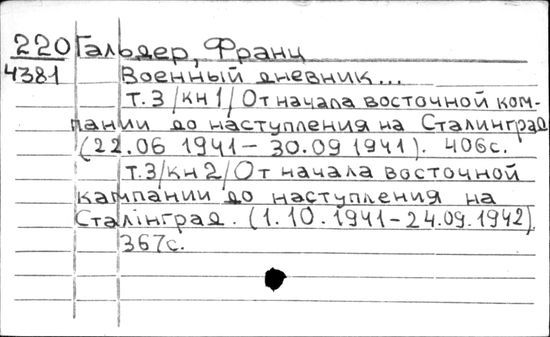 220 Гальдер, Франц
4381 Военный дневник...
т.3 /кн 1/ От начала восточной ком-
пании до наступления на Сталинград
(22.06 1941 - 30.09 1941). 406с.
т.3/кн 2/ От начала восточной
кампании до наступления на
Сталінград. (1.10.1941-24.09.1942)
367с.